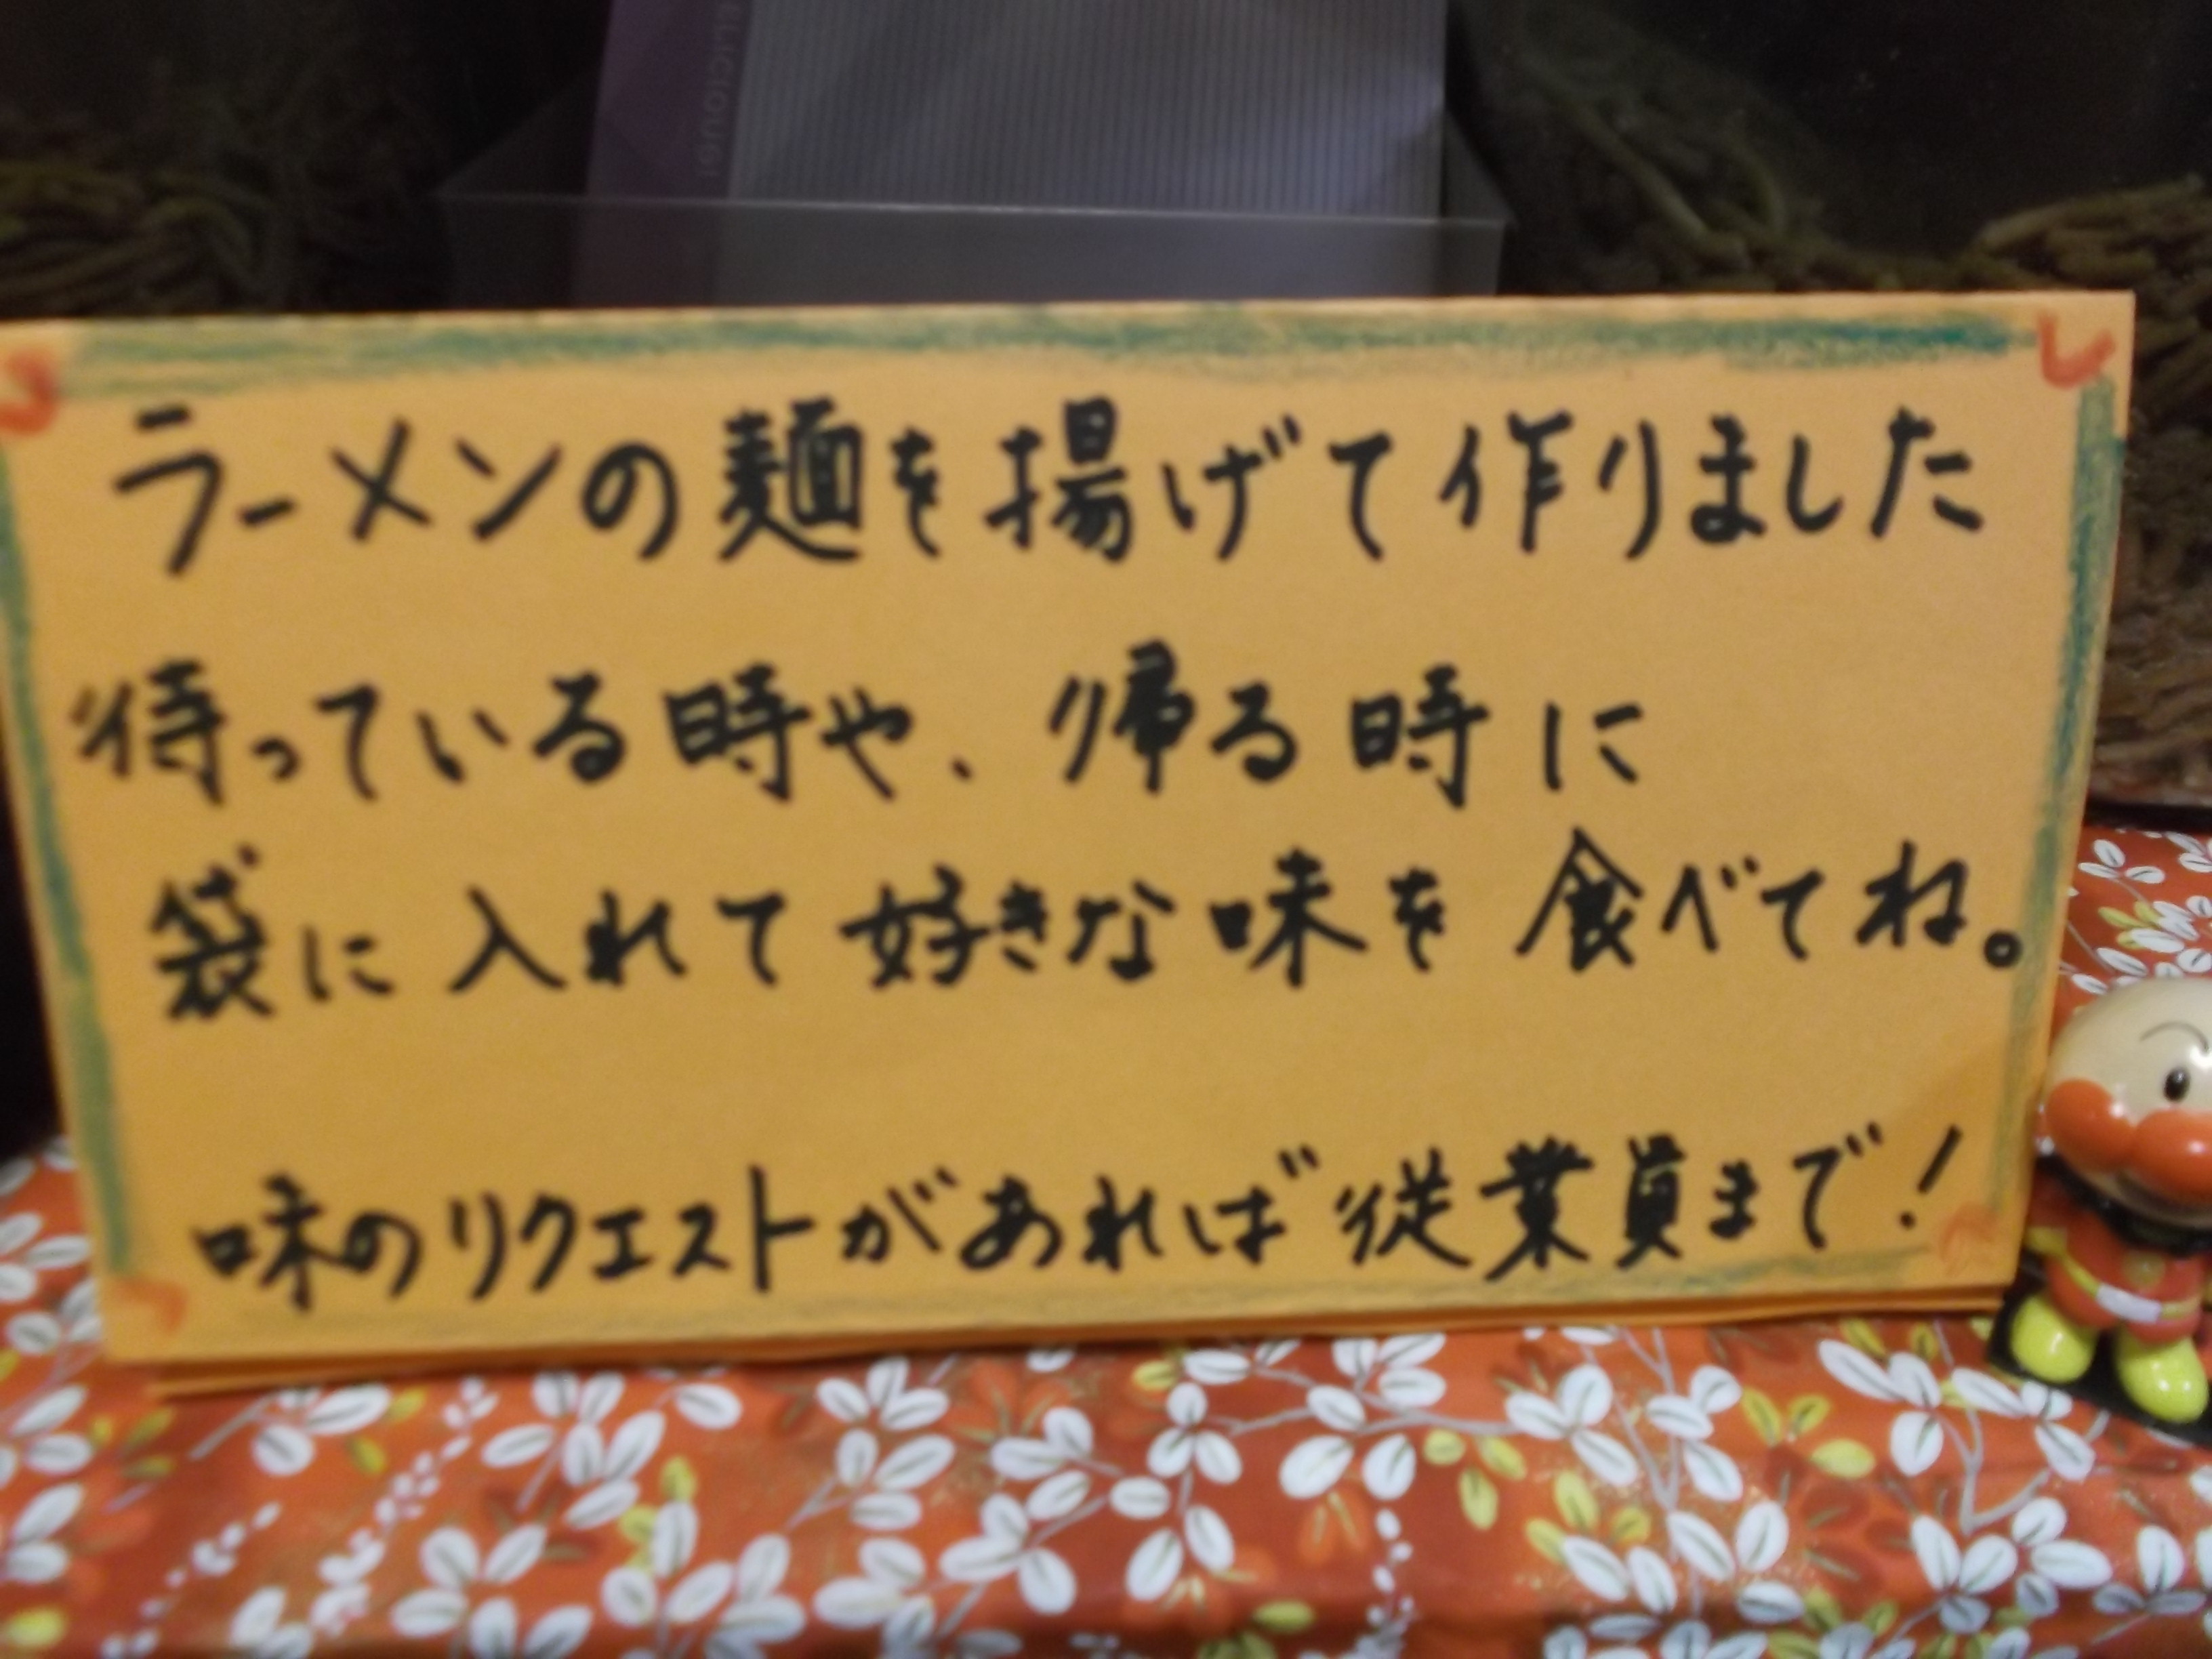 DELICIOUS!
ラーメンの麺を揚げて作りました
待っている時や、帰る時に
袋に入れて好きな味を食べてね。
味のリクエストがあれば従業員まで!